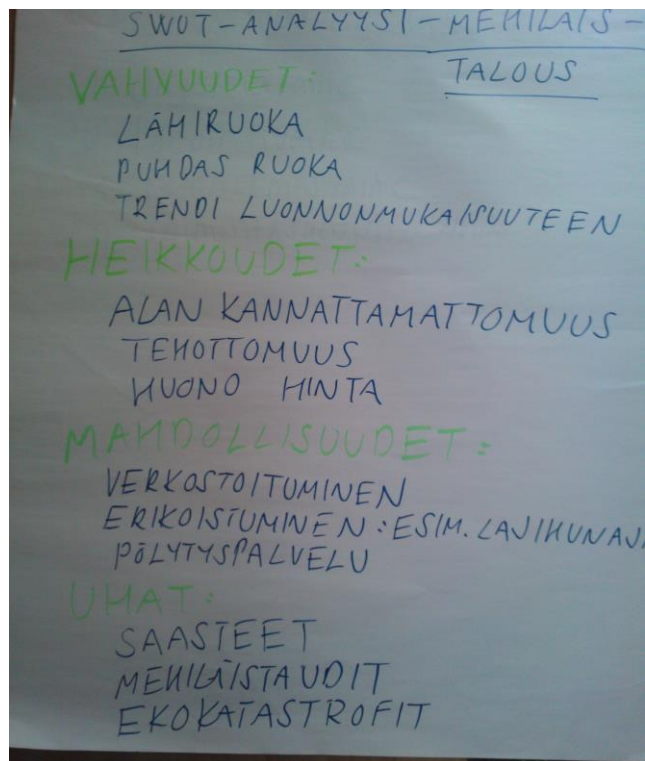 SWOT-ANALYYSI-MEHILÄIS-
TALOUS
VAHVUUDET:
LÄHIRUOKA
PUHDAS RUOKA
TRENDI LUONNONMUKAISUUTEEN
HEIKKOUDET:
ALAN KANNATTAMATTOMUUS
TEHOTTOMUUS
HUONO HINTA
MAHDOLLISUUDET:
VERKOSTOITUMINEN
ERIKOISTUMINEN: ESIM. LAJIHUNAJ
PÖLYTYSPALVELU
UHAT:
SAASTEET
MEHILÄISTAUDIT
EKOKATASTROFIT